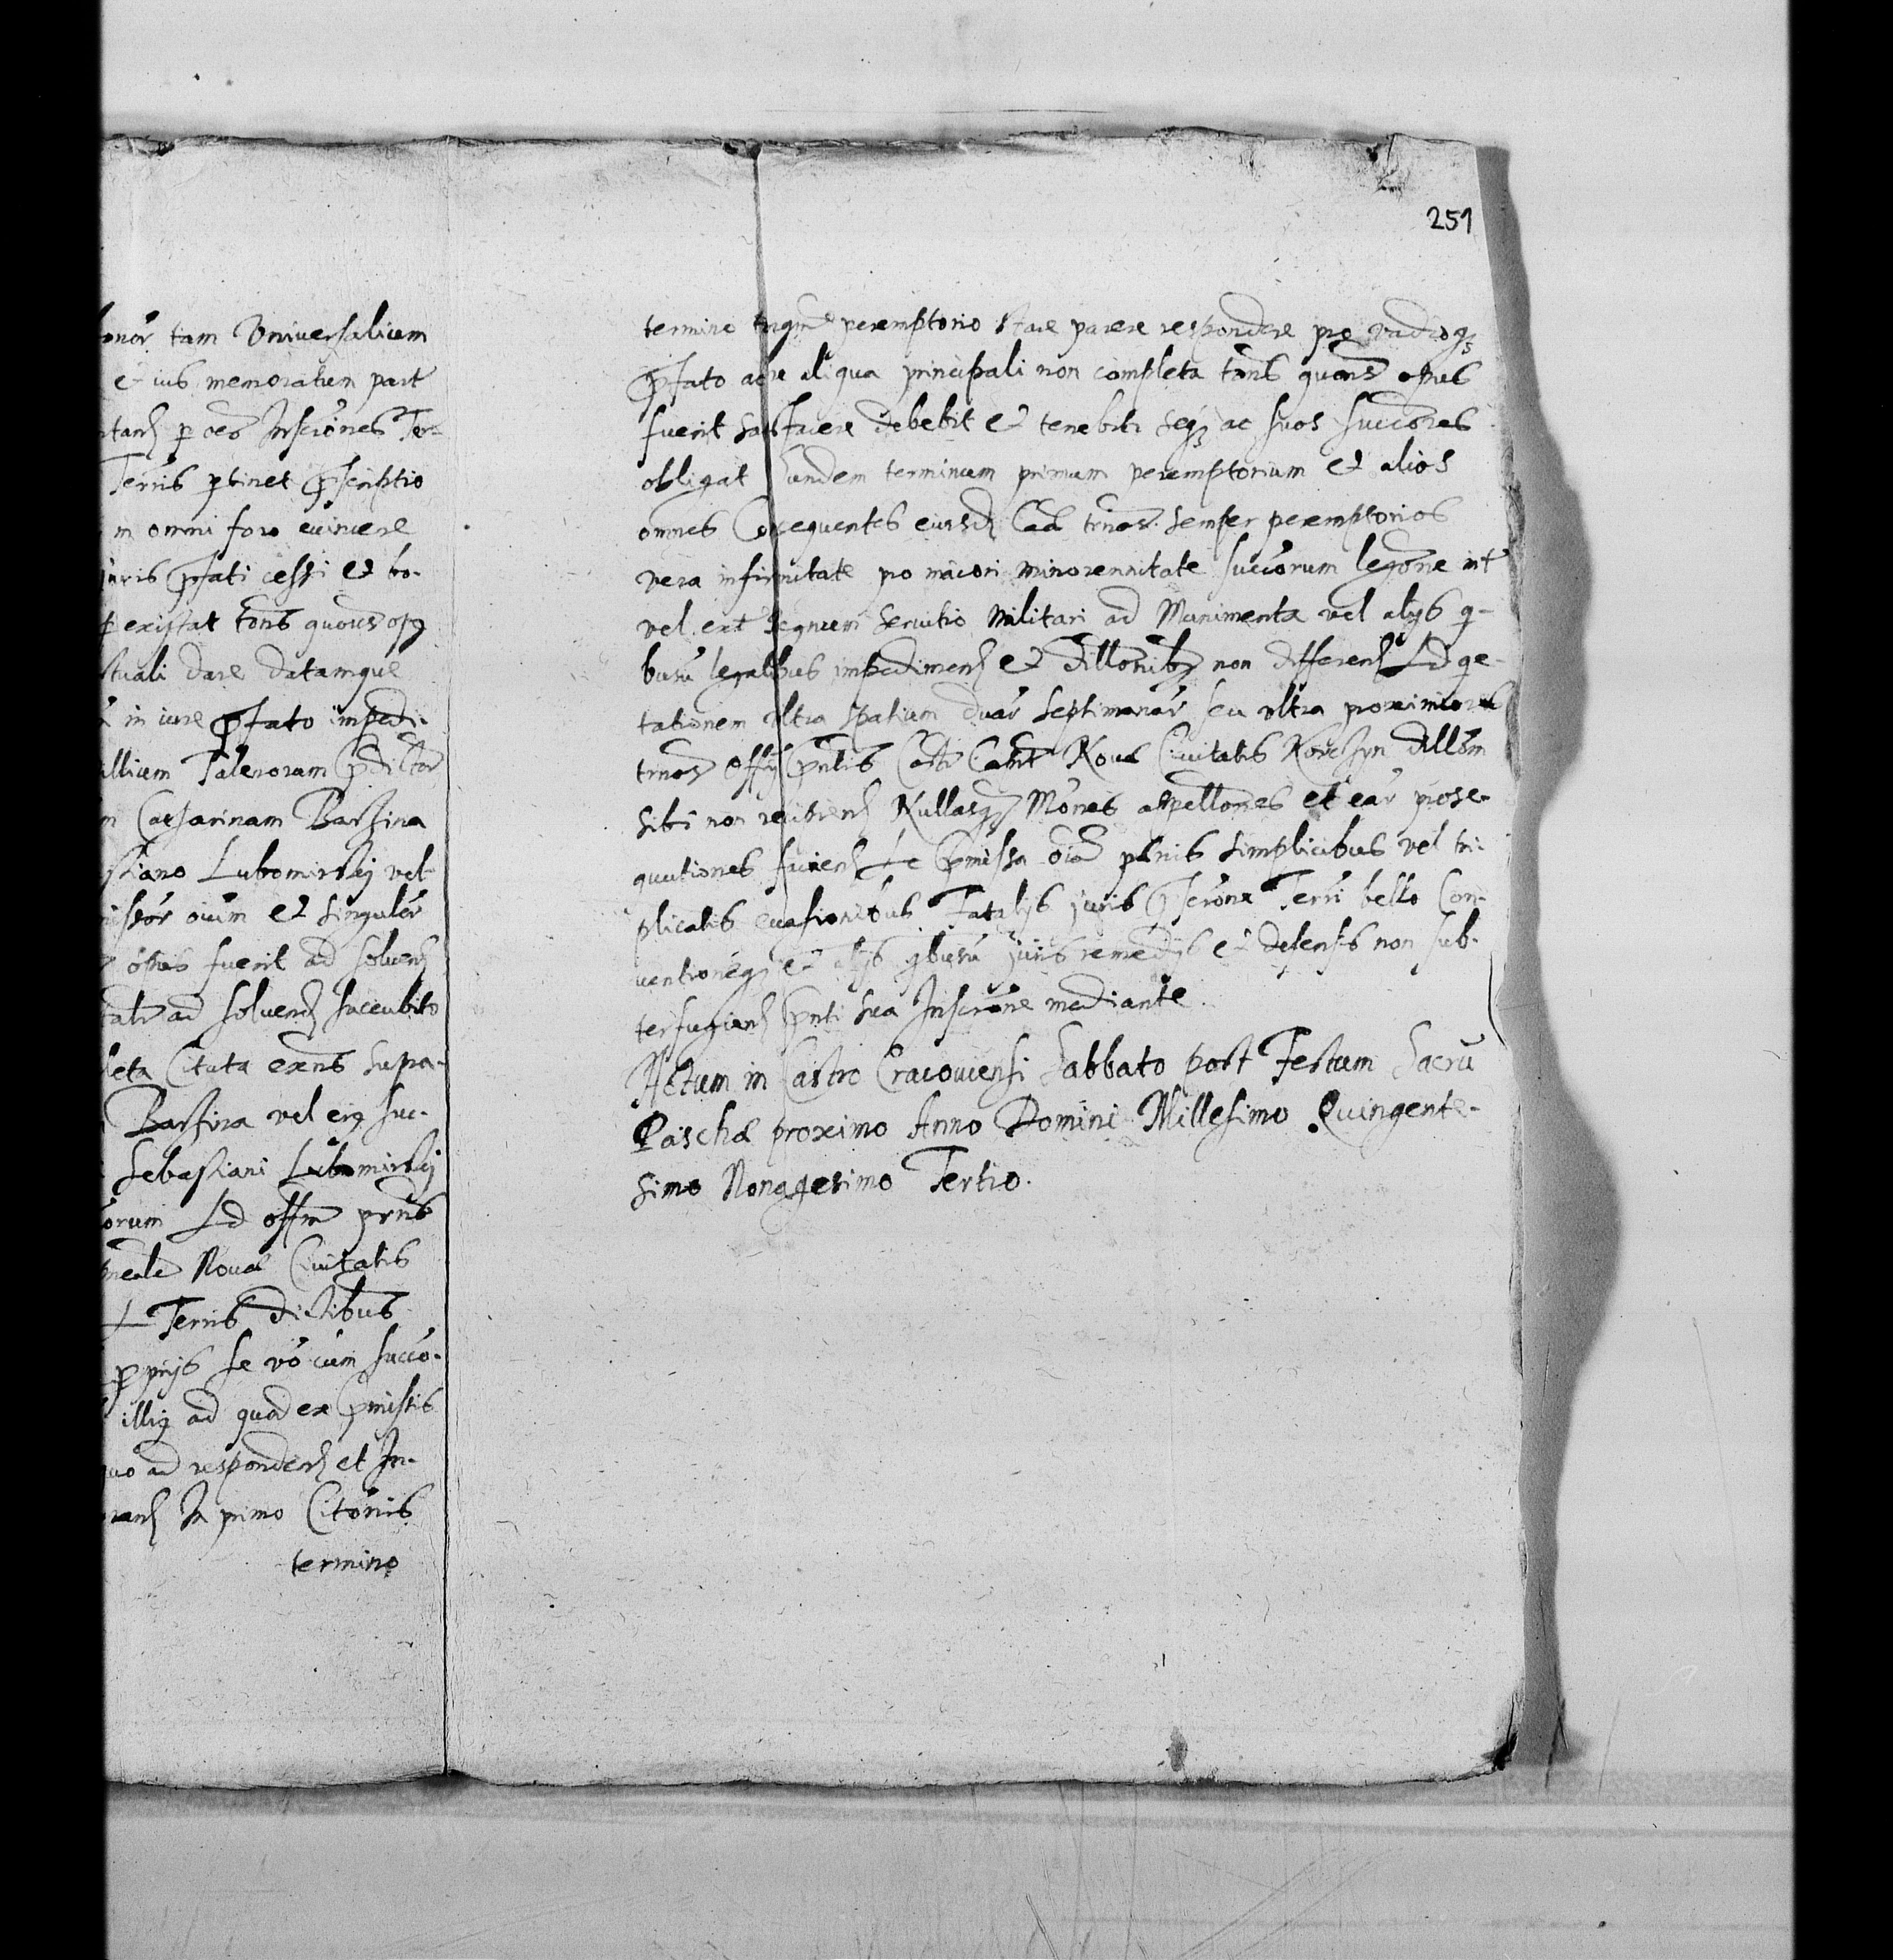 251
onor̃ tam Vniversalium
et ius memoratum part
p oes Inscriones Ter-
Terris ptinet pscriptio
m omni foro euincere
iuris pfati cessi et bo-
existat tons quous opq
ctuali dare datamque
in iure pfato impedi-
illium Talerorum pdictor
m Catharinam Barsina
stiano Lubomirskij vel
oium et singulor
opus fuerit ad soluend
ad soluend succubito
leta Citata exns supra-
Barsina vel eiq suc-
Sebastiani Lubomirskij
orum Ad offm prns
Nouae Ciuitatis
Terris dictibus
p pnijs se vo cum succo-
illiq ad quod ex pmissis
quo ad respondend et In-
rand In primo Citonis
termino
termino tnqm peremptorio stare parere respondere pro vadioq
pfato acre aliqua principali non completa tons quous opus
fuerit satisfacere debebit et tenebitr seq ac suos succores
obligat Eundem terminum primum peremptorium et alios
omnes Consequentes eiusd Cad trnos semper peremptorios
vera infirmitate pro maiori minorennitate succorum legone int
vel ext Regnum seruitio Militari ad Munimenta vel alijs q-
busu legalibus impedimend et dillonibq non differend Ad qe-
tationem vltra spatium duar septimanar seu vltra proximiores
trnos Offij pntis Castr Capit Noua Ciuitatis Korczyn dillom
sibi non recibrend Nullasq Mones appellones et ear prose-
qutiones faciend Ac pmissa oia penis simplicibus vel tri-
plicatis euasionibus Fatalijs juris pscrone Terri bello Con-
uentioneq et alijs qbusu juris remedijs et defensis non sub-
terfugiend pnti sua Inscrone mediante.
Actum in Castro Cracouiensi Sabbato post Festum Sacru
Paschae proximo Anno Domini Millesimo Quingente-
simo Nonagesimo Tertio.